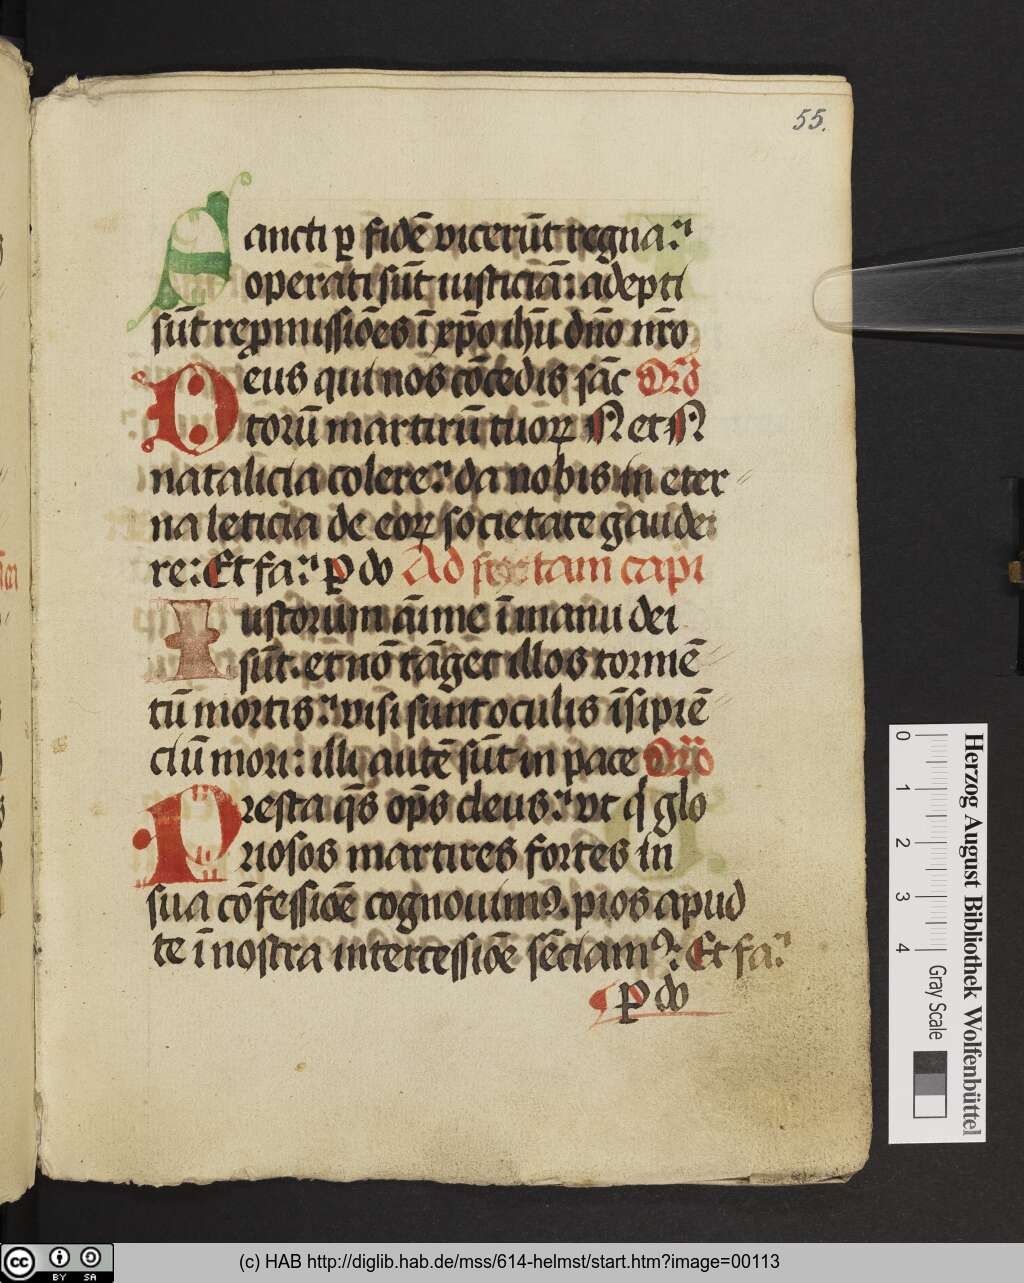 55.
Sancti ꝑ fidē vicerūt regna:
operati sūt iusticiā: adepti
sūt repꝛomissiōes ī xp̄o ih̄u dn̄o nr̄o
Deus qui nos cōcedis sāc Oꝛō
toꝛū martirū tuoꝝ N et N
natalicia colere: da nobis in eter
na leticia de eoꝝ societate gaude
re: Et fa: ꝑ do Ad sextam capi
Iustoꝛum aīme ī manu dei
sūt. et nō tāget illos toꝛmē
tū moꝛtis: visi sunt oculis īsipiē
ciū moꝛi: illi autē sūt in pace Oꝛō
Pꝛesta q̄s op̄s deus: vt q̇ glo
ꝛiosos martires foꝛtes in
sua cōfessiōe cognouimꝰ. pios apud
te ī nostra intercessiōe sēciamꝰ: Et fa:
ꝑ do
0
1
2
3
4
Gray Scale
Herzog August Bibliothek Wolfenbüttel
cc BY SA
(c) HAB http://diglib.hab.de/mss/614-helmst/start.htm?image=00113